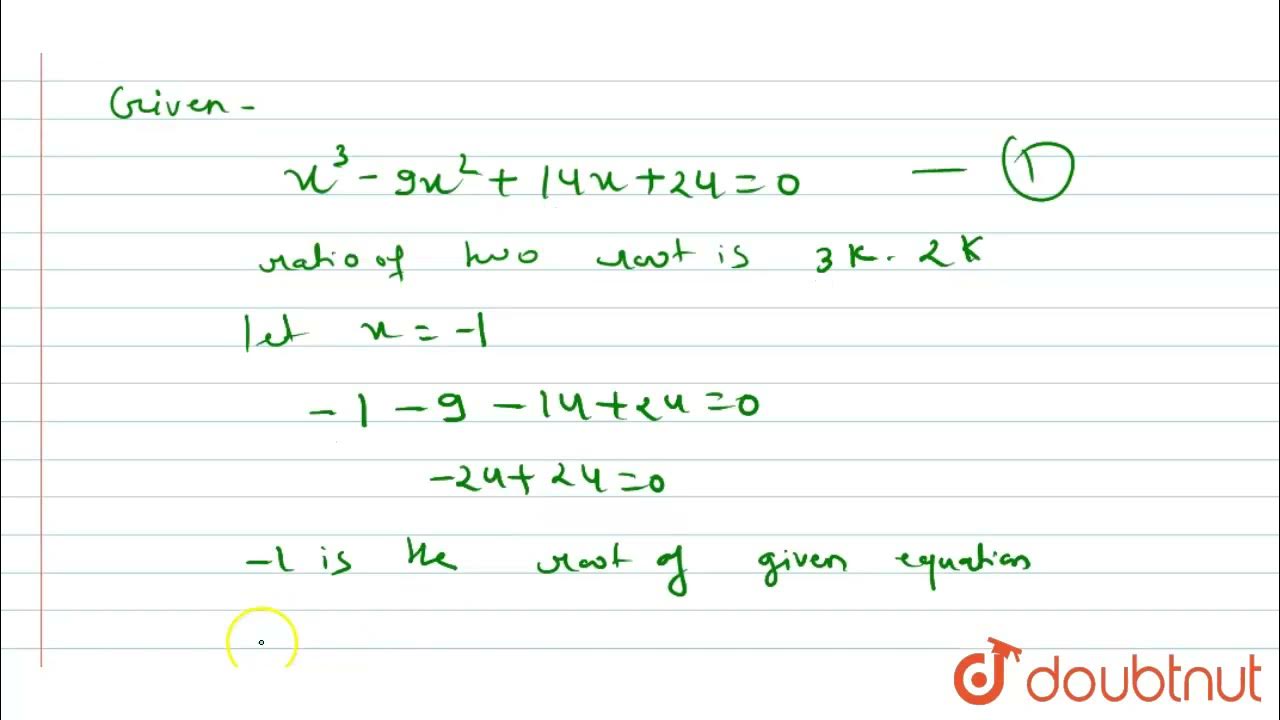 Given -
x³ - 9x² + 14x + 24 = 0 — ①
ratio of two root is 3K. 2K
let x = -1
-1 - 9 - 14 + 24 = 0
-24 + 24 = 0
-1 is the root of given equation
doubtnut